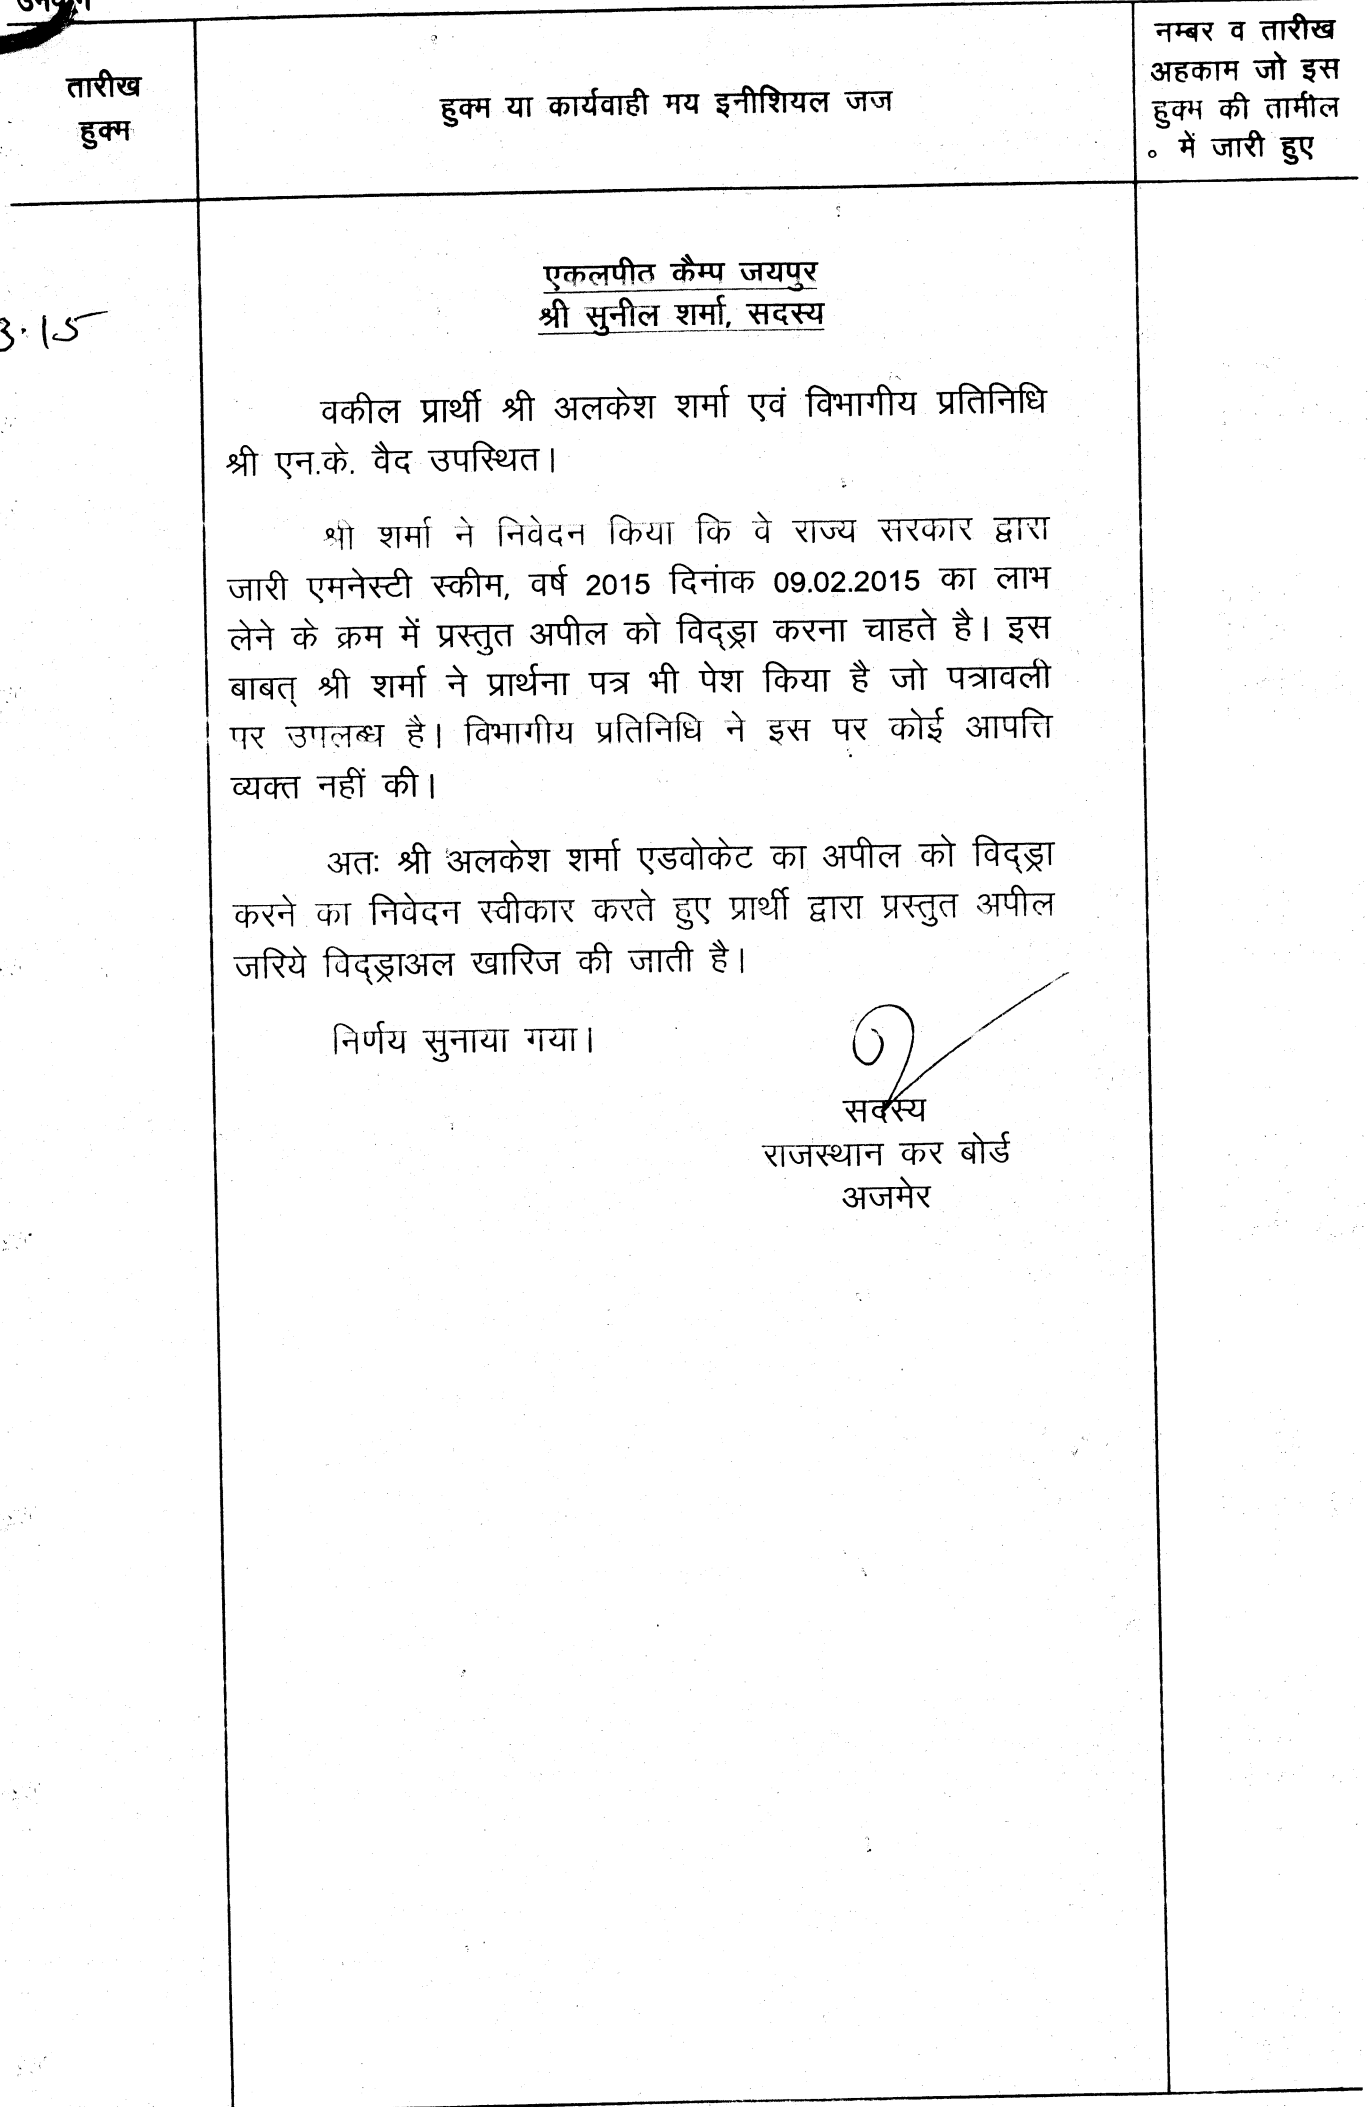 तारीख
हुक्म
हुक्म या कार्यवाही मय इनीशियल जज
नम्बर व तारीख
अहकाम जो इस
हुक्म की तामील
में जारी हुए
3.15
एकलपीठ कैम्प जयपुर
श्री सुनील शर्मा, सदस्य
वकील प्रार्थी श्री अलकेश शर्मा एवं विभागीय प्रतिनिधि
श्री एन.के. वैद उपस्थित।
श्री शर्मा ने निवेदन किया कि वे राज्य सरकार द्वारा
जारी एमनेस्टी स्कीम, वर्ष 2015 दिनांक 09.02.2015 का लाभ
लेने के क्रम में प्रस्तुत अपील को विद्ड्रा करना चाहते है। इस
बाबत् श्री शर्मा ने प्रार्थना पत्र भी पेश किया है जो पत्रावली
पर उपलब्ध है। विभागीय प्रतिनिधि ने इस पर कोई आपत्ति
व्यक्त नहीं की।
अतः श्री अलकेश शर्मा एडवोकेट का अपील को विद्ड्रा
करने का निवेदन स्वीकार करते हुए प्रार्थी द्वारा प्रस्तुत अपील
जरिये विद्ड्राअल खारिज की जाती है।
निर्णय सुनाया गया।
सदस्य
राजस्थान कर बोर्ड
अजमेर